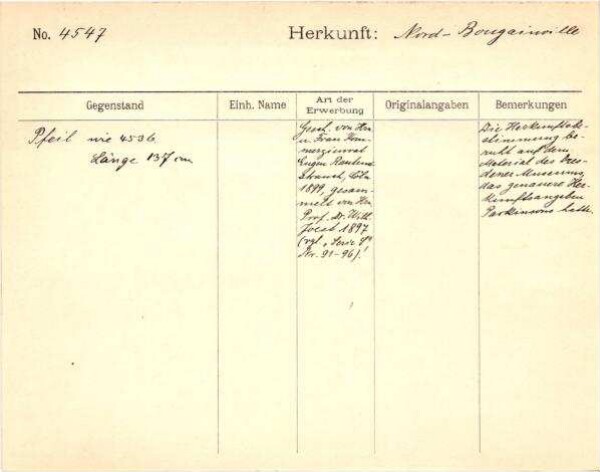 No. 4547 Herkunft: Nord-Bougainville
Gegenstand
Einh. Name
Art der
Erwerbung
Originalangaben
Bemerkungen
Pfeil wie 4536
Länge 137 cm
Gesch. von Herrn
u. Frau Kom-
merzienrat
Eugen Rauten-
strauch, Cöln
1899, gesam-
melt von Herrn
Prof. Dr. Wilh.
Joest 1897
(vgl. Serie
Nr. 91-96).
Die Herkunftsbe-
stimmung be-
ruht auf dem
Material des Dres-
dener Museums,
das genauere Her-
kunftsangaben
Parkinsons hatte.